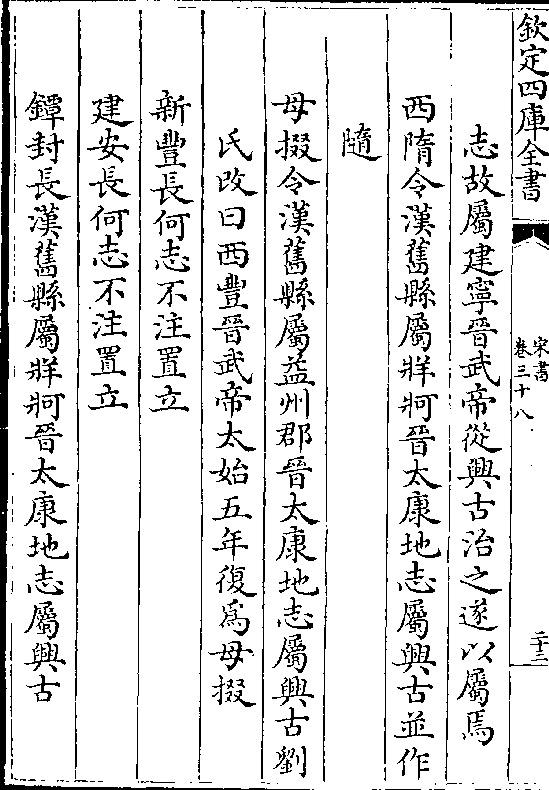 欽定四庫全書
宋書
卷三十八
二十三
志故屬建寧晉武帝從興古治之遂以屬焉
西隋令漢舊縣屬牂牁晉太康地志屬興古並作
隨
母掇令漢舊縣屬益州郡晉太康地志屬興古劉
氏改曰西豐晉武帝太始五年復爲母掇
新豐長何志不注置立
建安長何志不注置立
鐔封長漢舊縣屬牂牁晉太康地志屬興古